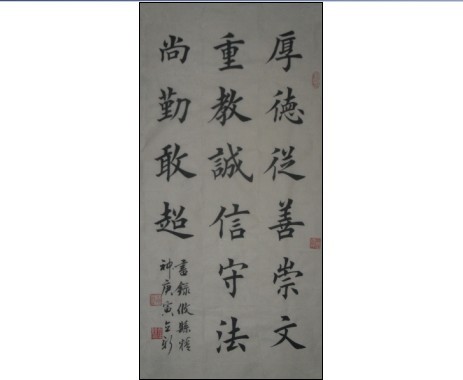 厚德從善崇文
重教誠信守法
尚勤敢超
書錄攸縣精
神庚寅立彩